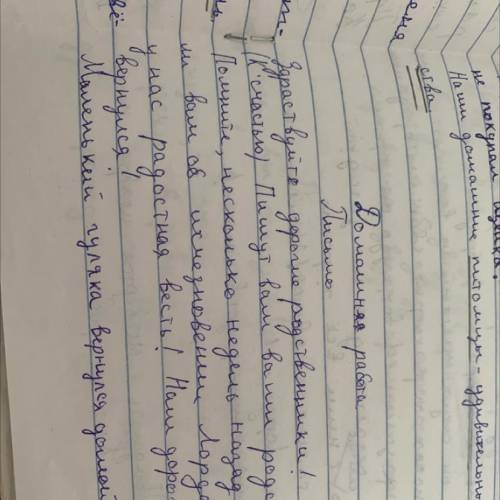 не покупал
Наши домашние питомцы - удивительны
ства.
Домашняя работа
Письмо
Здраствуйте дорогие родственники!
(К счастью) Пишут вам ваши родс
Помните, несколько недель назад
ли вам об исчезновении Лорда
у нас радостная весть! Наш доро
вернулся!
Маленький гуляка вернулся домой